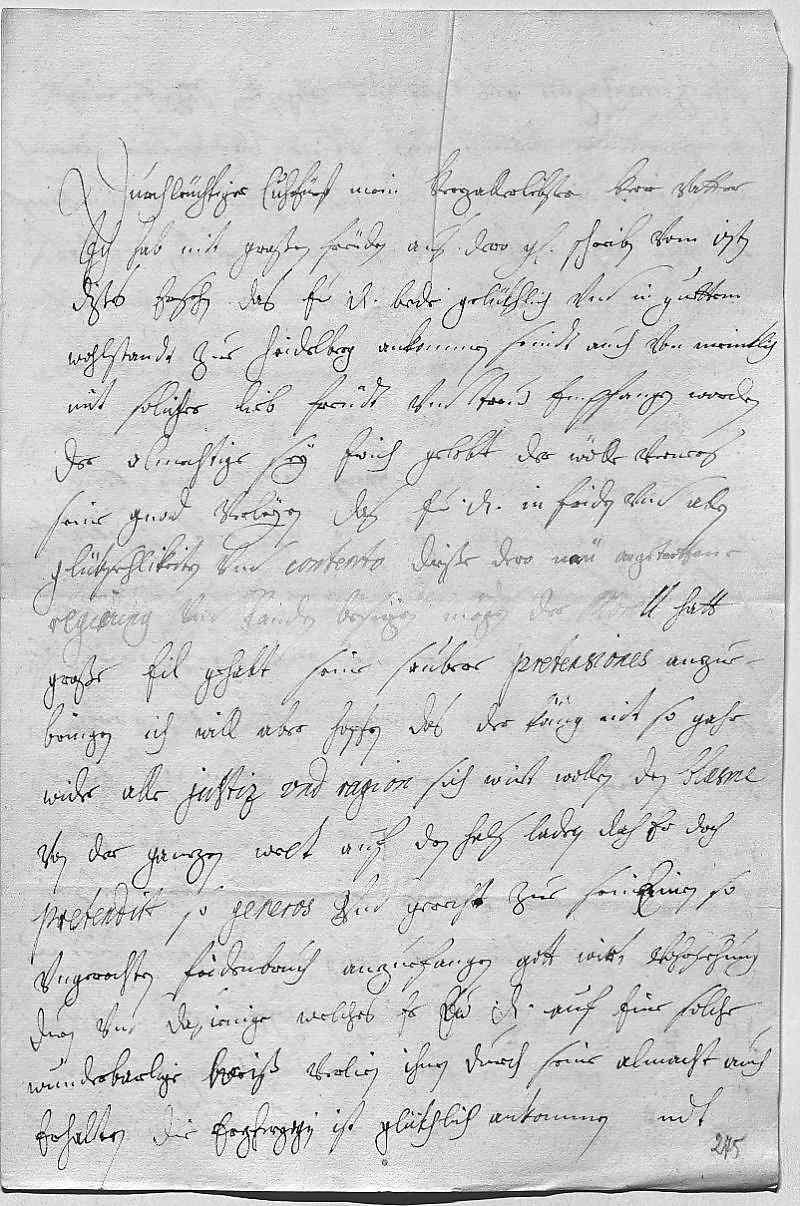 Durchleichtiger Churfürst mein Herzallerliebster herr Vatter
Ich hab mit großen freüden auß dero schreiben vom
dises das Eu D. bede gelückhlich und in guttem
wohlstandt zue Heidelberg ankommen seindt auch von meniklich
mit solicher lieb freüdt und Empfangen worden
der almechtige sey gelobt der wölle
seine gnad verleyen das Eu D. in friden und allen
glückhselikeiten und contento diße dero neü angetrettene
regierung und landen besizen mögen der hatt
große eil gehabt seine saubere pretensiones anzue-
bringen ich will aber hoffen das der küng nit so gahr
wider alle justiz vnd ragion sich wirt wollen den blasme
von der ganzen welt auf den halß laden daß Er doch
pretendirt so generos und gerecht zue sein Einen so
ungerechten fridenbruch anzuefangen gott wirt
thun und dasienige welches Er Eu D. auf Eine solche
wunderbarlige weiß verlien ihnen durch seine almacht auch
Erhalten die ist glückhlich ankommen und
245